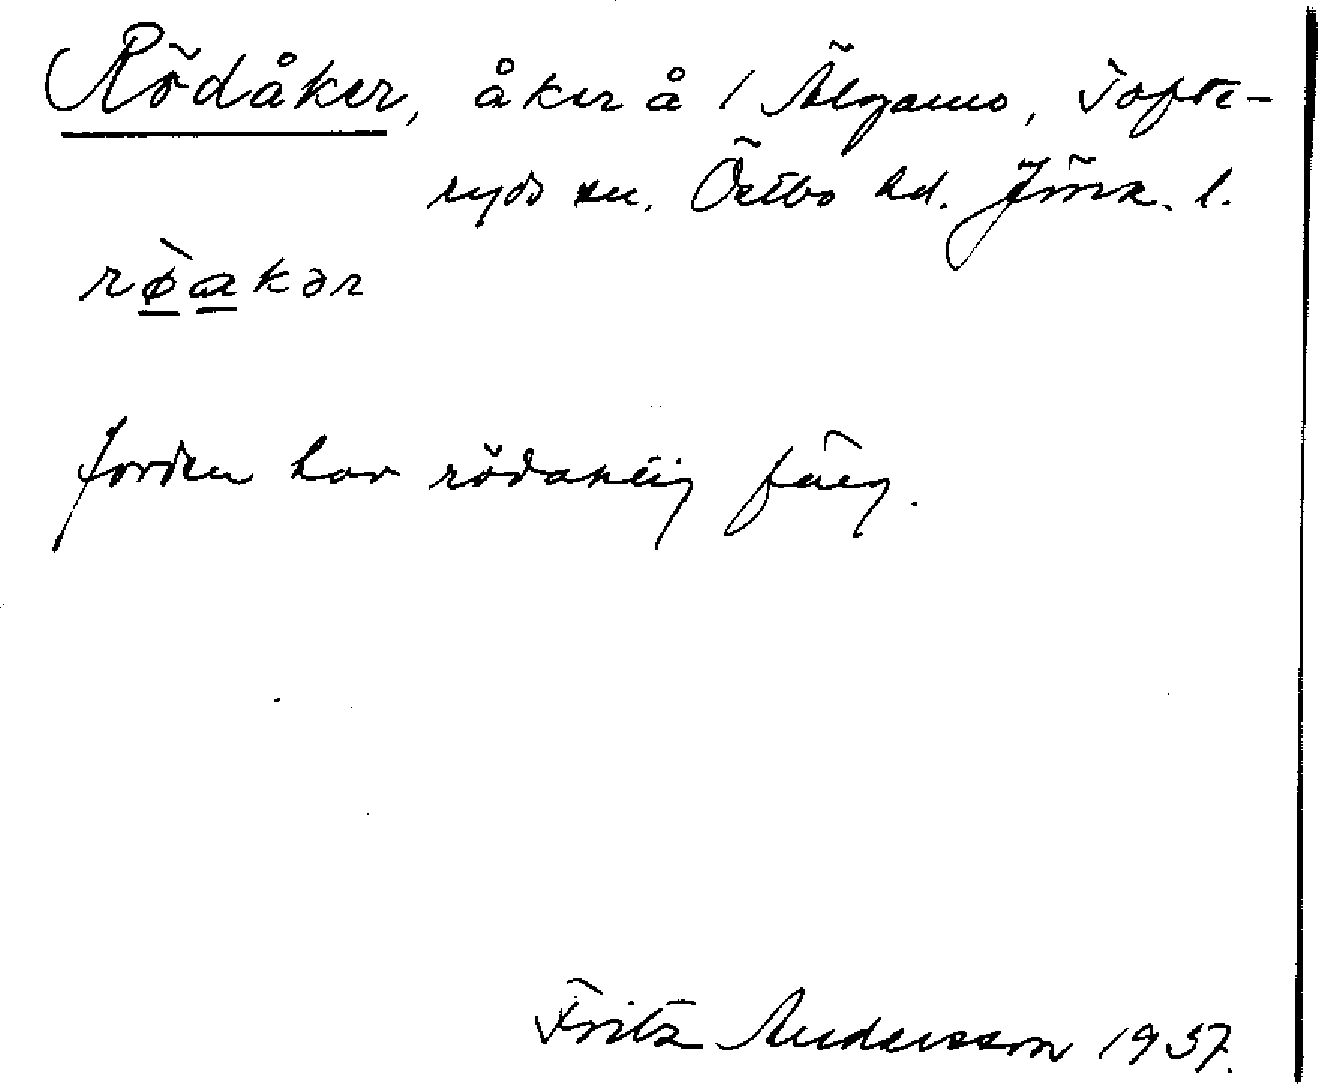 Rödåker, åker å / Älgamo, Tofte-
ryds sn. Östbo hd. Jönk. l.
røakər
Jorden har rödaktig färg.
Fritz Andersson 1937.